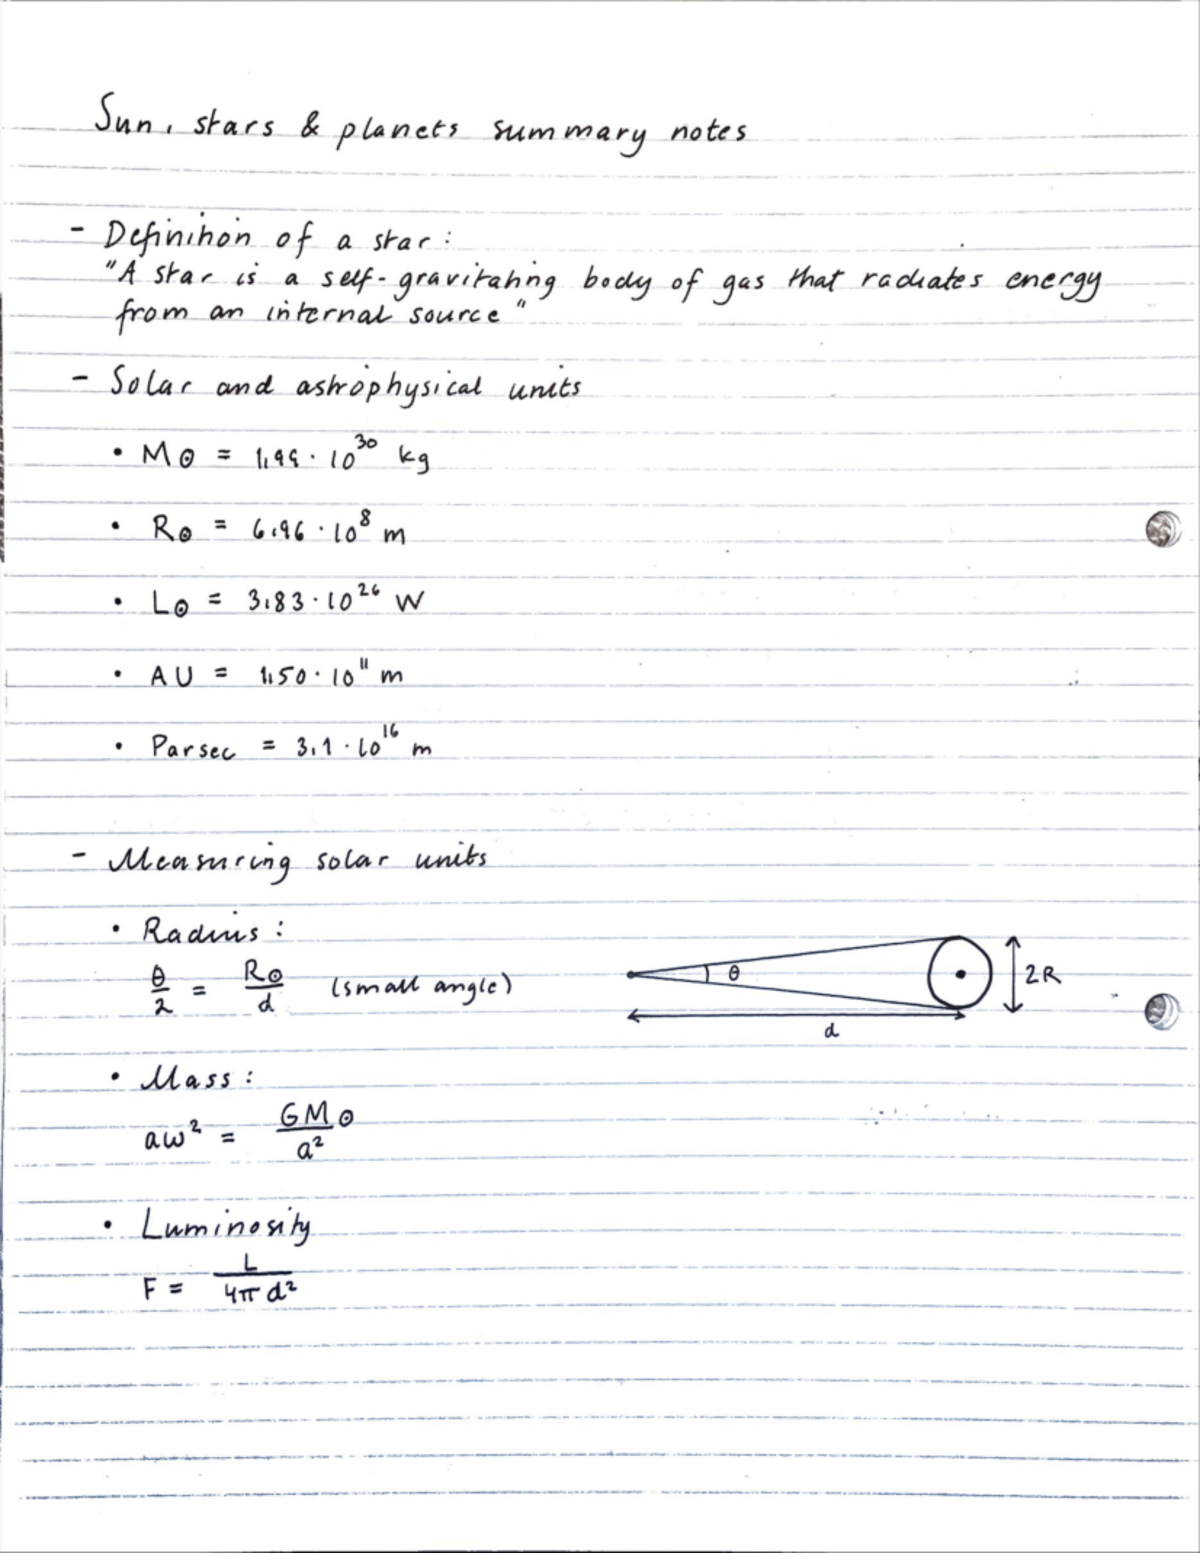 Sun, stars & planets summary notes
- Definition of a star:
"A star is a self-gravitating body of gas that radiates energy
from an internal source"
- Solar and astrophysical units
• M⊙ = 1,99 · 10³⁰ kg
• R⊙ = 6,96 · 10⁸ m
• L⊙ = 3,83 · 10²⁶ W
• AU = 1,50 · 10¹¹ m
• Parsec = 3,1 · 10¹⁶ m
- Measuring solar units
• Radius:
θ/2 = R⊙/d (small angle)
θ
2R
d
• Mass:
aω² = GM⊙/a²
• Luminosity
F = L/4πd²